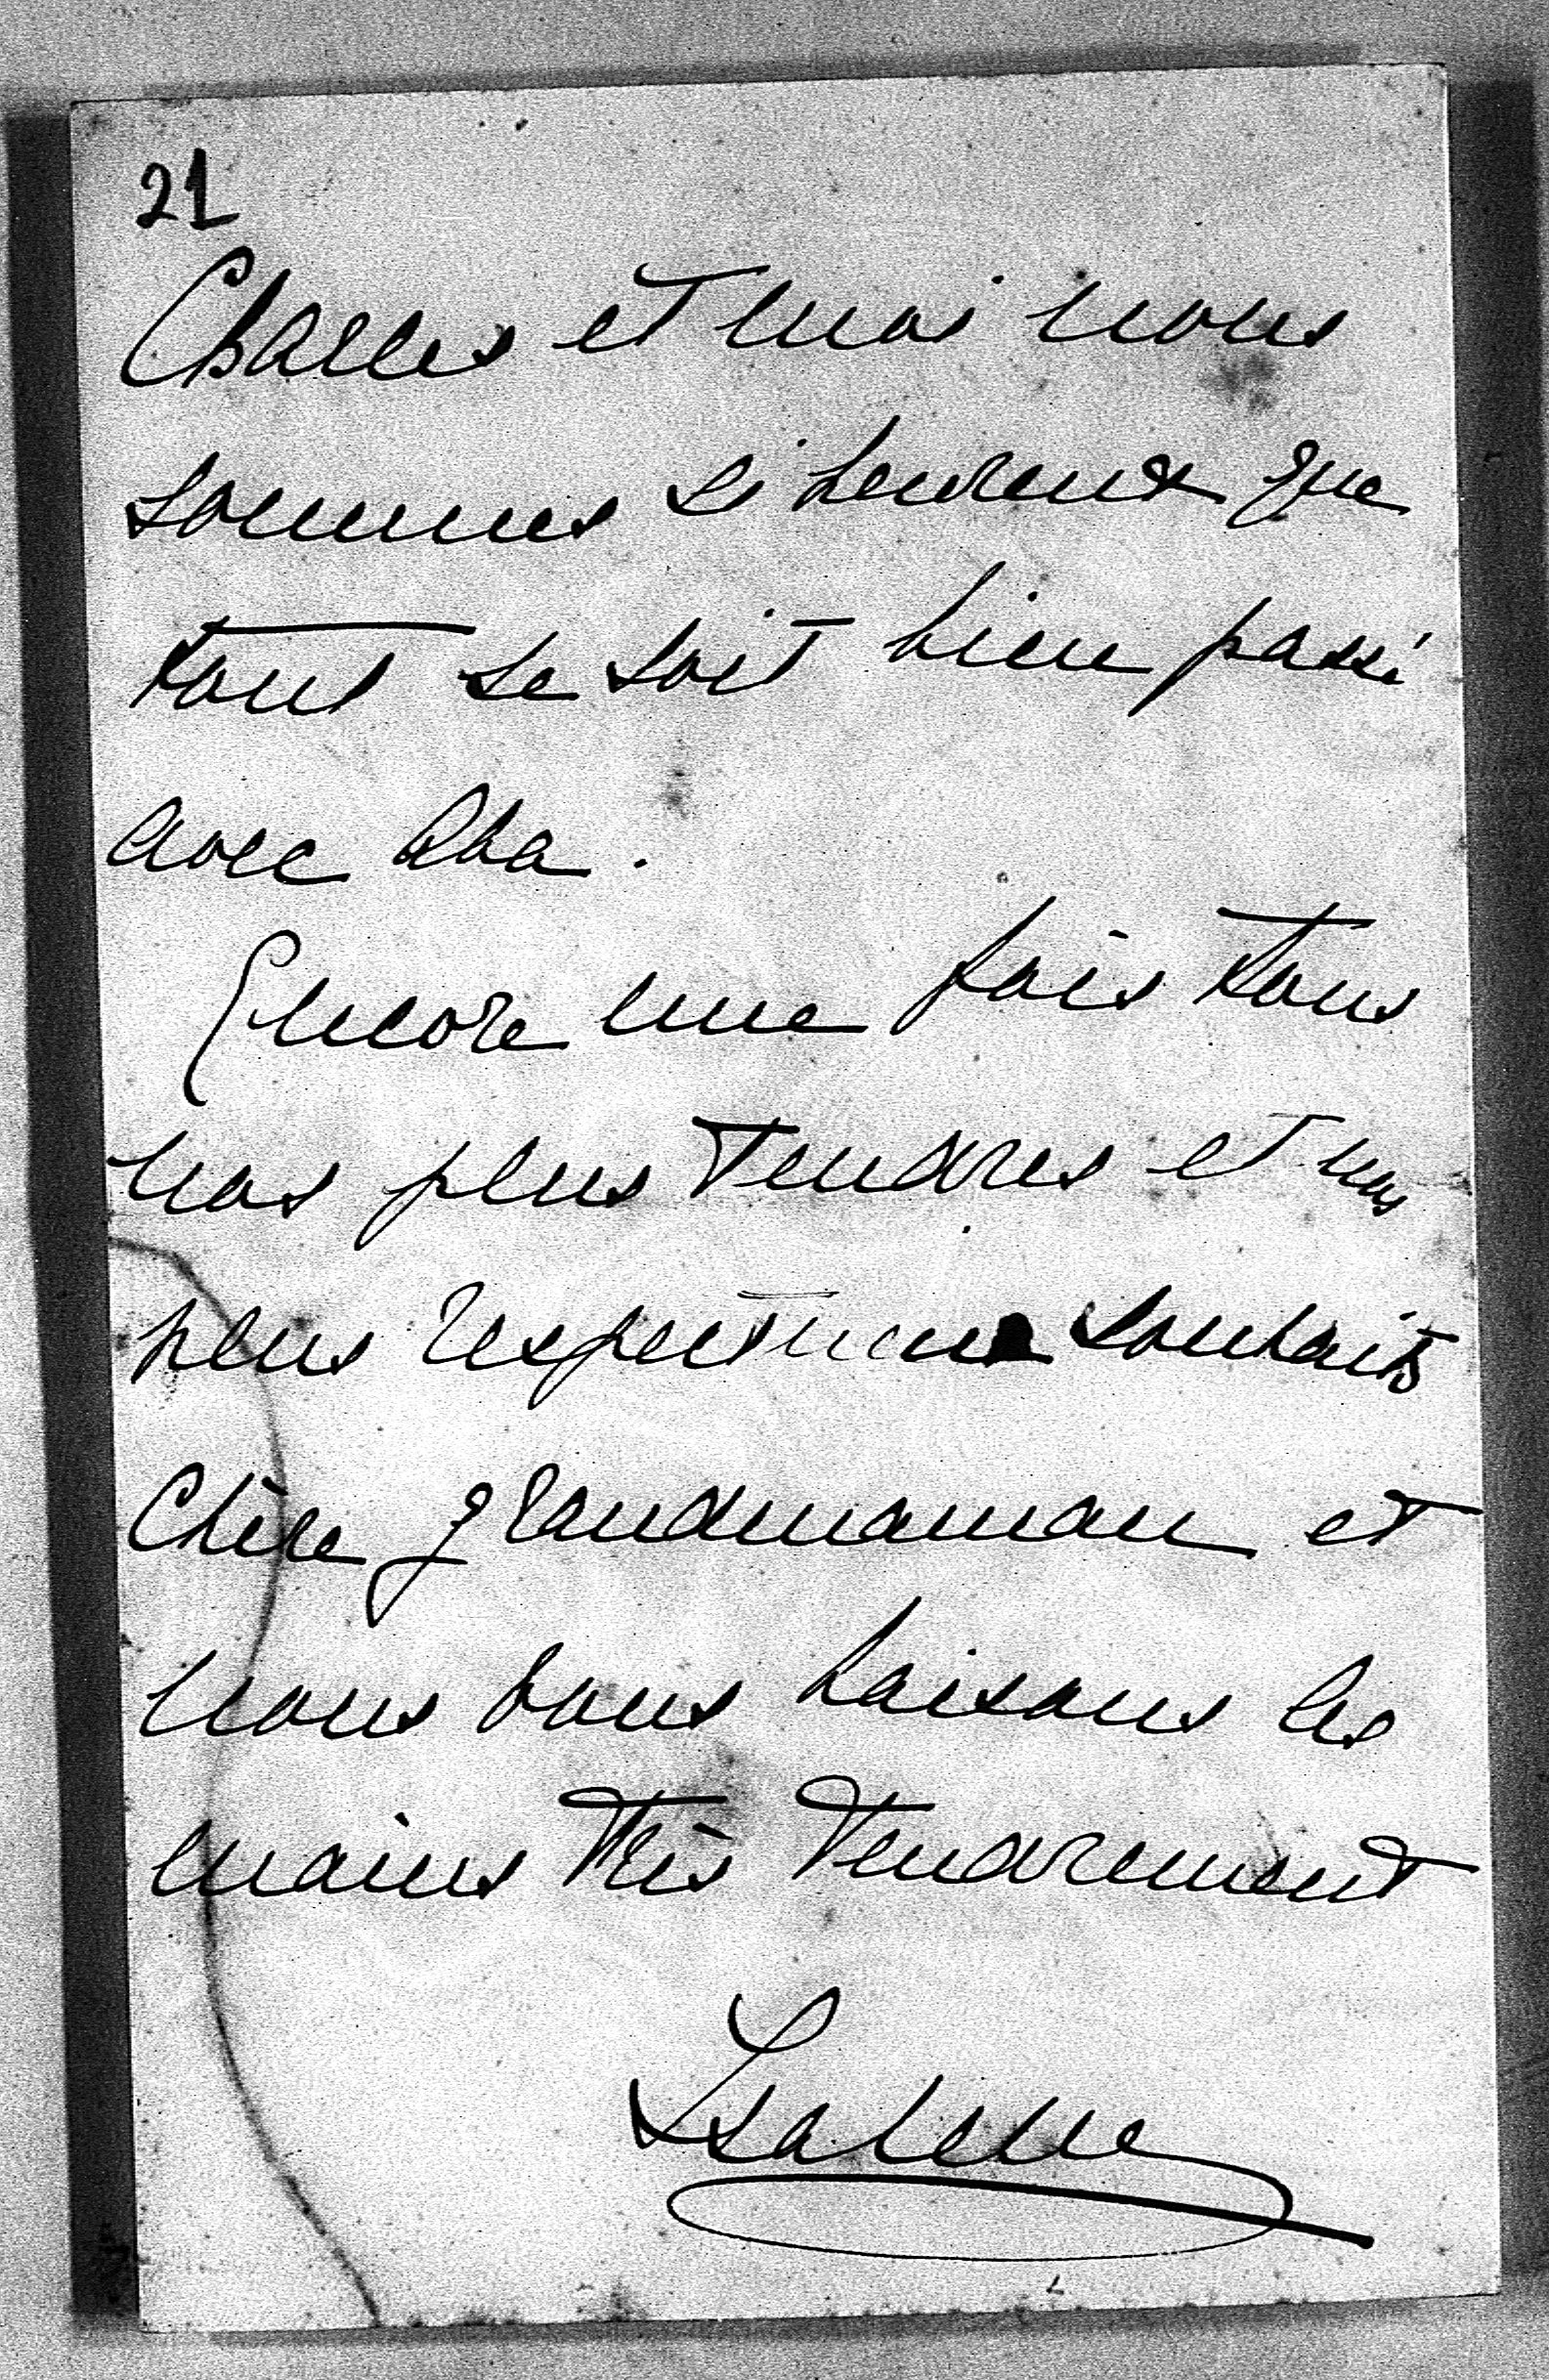 21
Charles et moi nous
sommes si heureux que
tout se soit bien passé
avec
Encore une fois tous
nos plus tendres et nos
plus respectueux souhaits
Chère grandmaman et
nous vous baisons les
mains très tendrement
Isabelle